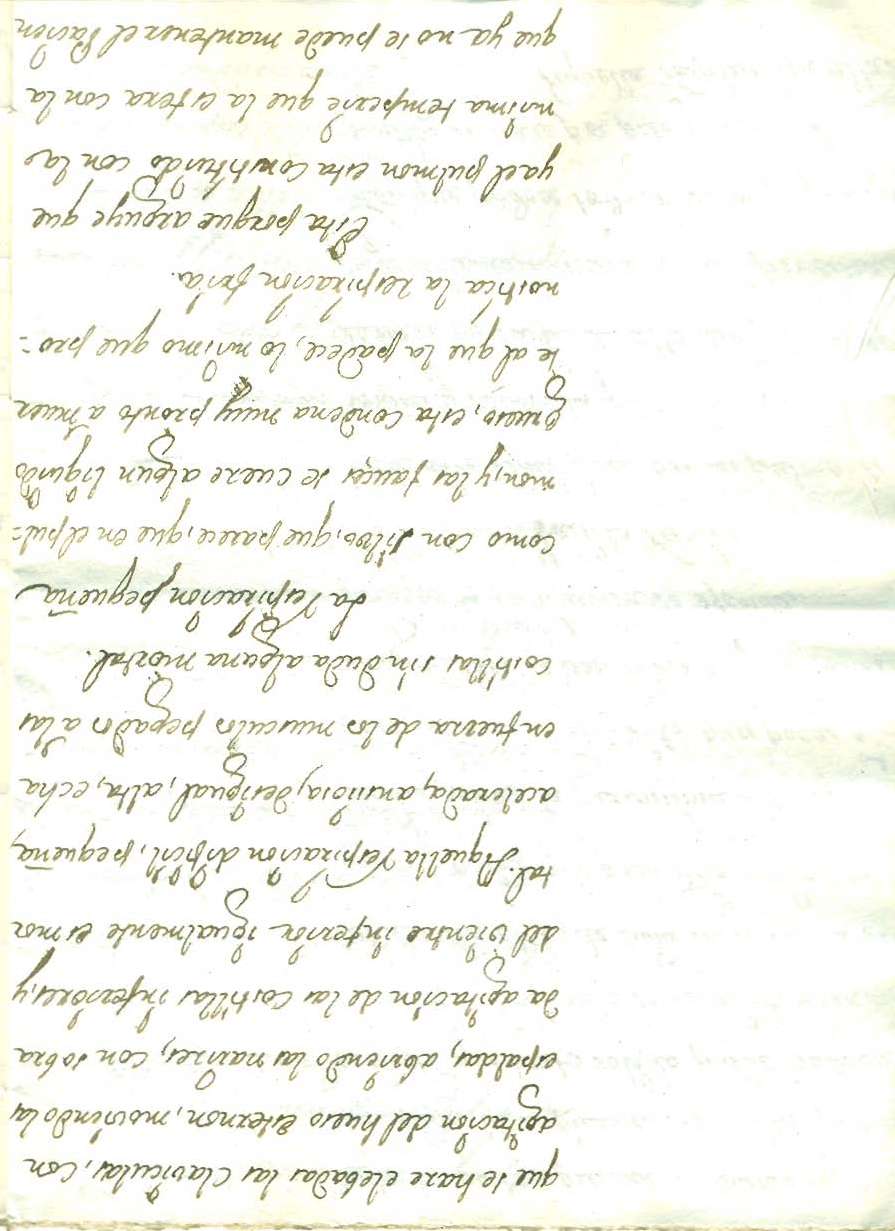 que se haze elebadas las claviculas, con
agitacion del hueso esternon, moviendo las
espaldas, abriendo las narizes, con sobra
da agitacion de las costillas inferiores, y
del vientre inferior igualmente es mor
tal. Aquella respiracion dificil, pequeña,
acelerada, anxiosa, desigual, alta, echa
en fuerza de los musculos pegados a las
costillas sin duda alguna mortal.
La respiracion pequeña
como con silvo, que parece, que en el pul=
mon, y las fauces se cueze algun liquido
grueso, esta condena muy pronto a muer
te al que la padece, lo mismo que pro=
nostica la respiracion fria.
Esta porque arguye que
ya el pulmon esta constituido con la
misma temperie que la esfera con la
que ya no se puede mantener el Pacien